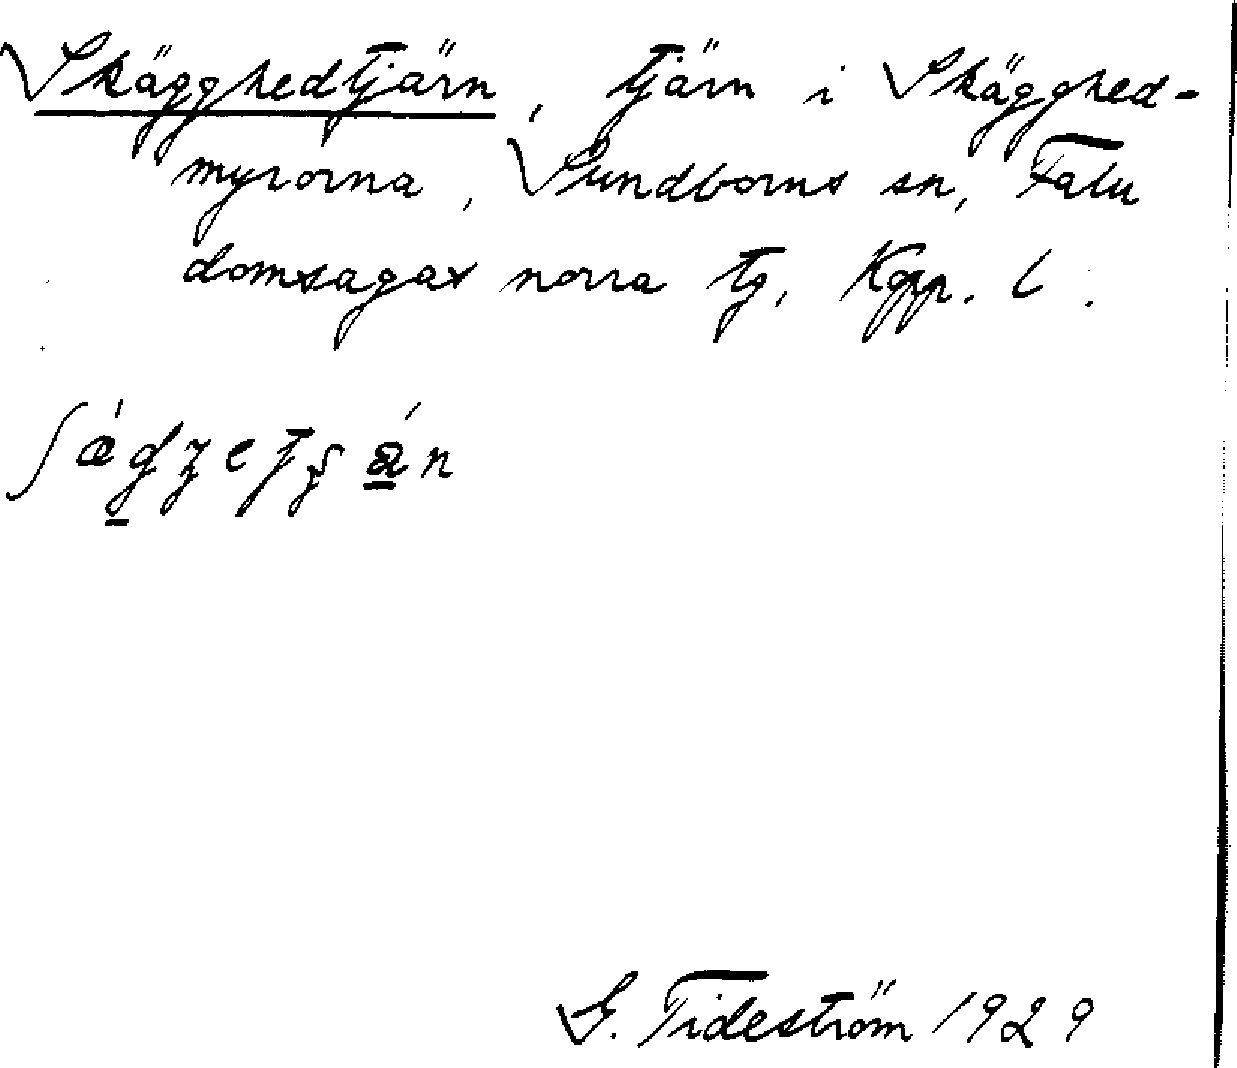 Skägghedtjärn, tjärn i Skägghed-
myrorna, Sundborns sn, Falu
domsagas norra tg, Kopp. l.
G. Tideström 1929